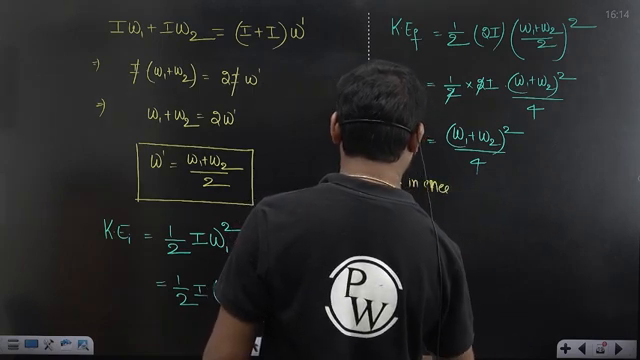 Iω₁ + Iω₂ = (I+I)ω'
⇒ I(ω₁+ω₂) = 2Iω'
⇒ ω₁+ω₂ = 2ω'
ω' = (ω₁+ω₂)/2
K.Eᵢ = 1/2 Iω₁²
= 1/2 I
K.E_f = 1/2 (2I) ((ω₁+ω₂)/2)²
= 1/2 × 2I (ω₁+ω₂)²/4
= (ω₁+ω₂)²/4
in
PW
16:14